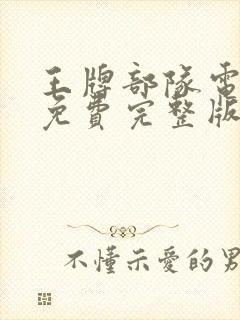 王牌部隊電
免費完整版
不懂示愛的男